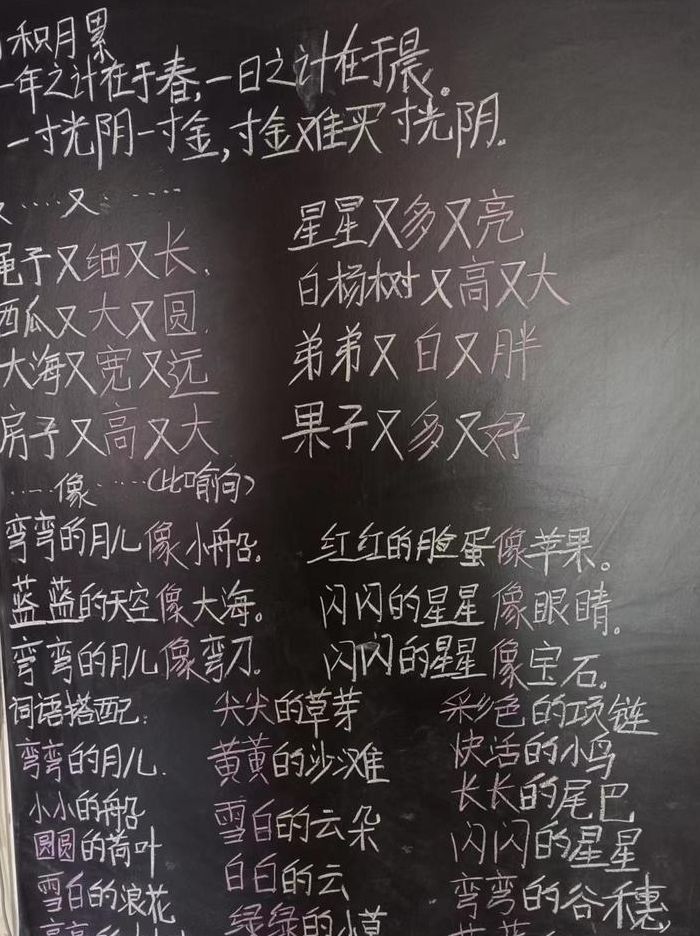 积月累
一年之计在于春,一日之计在于晨。
一寸光阴一寸金,寸金难买寸光阴。
……又……
绳子又细又长.
西瓜又大又圆.
大海又宽又远
房子又高又大
星星又多又亮
白杨树又高又大
弟弟又白又胖
果子又多又好
……像……(比喻句)
弯弯的月儿像小船。
蓝蓝的天空像大海。
弯弯的月儿像弯刀.
红红的脸蛋像苹果。
闪闪的星星像眼睛。
闪闪的星星像宝石。
词语搭配:
弯弯的月儿.
小小的船
圆圆的荷叶
雪白的浪花
尖尖的草芽
黄黄的沙滩
雪白的云朵
白白的云
绿绿的小草
彩色的项链
快活的小鸟
长长的尾巴
闪闪的星星
弯弯的谷穗